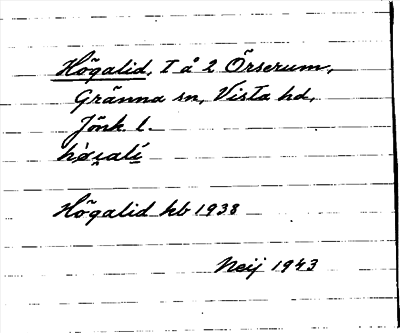 Högalid, T å 2 Örserum,
Gränna sn, Vista hd,
Jönk. l.
Högalid hb 1938
Neij 1943